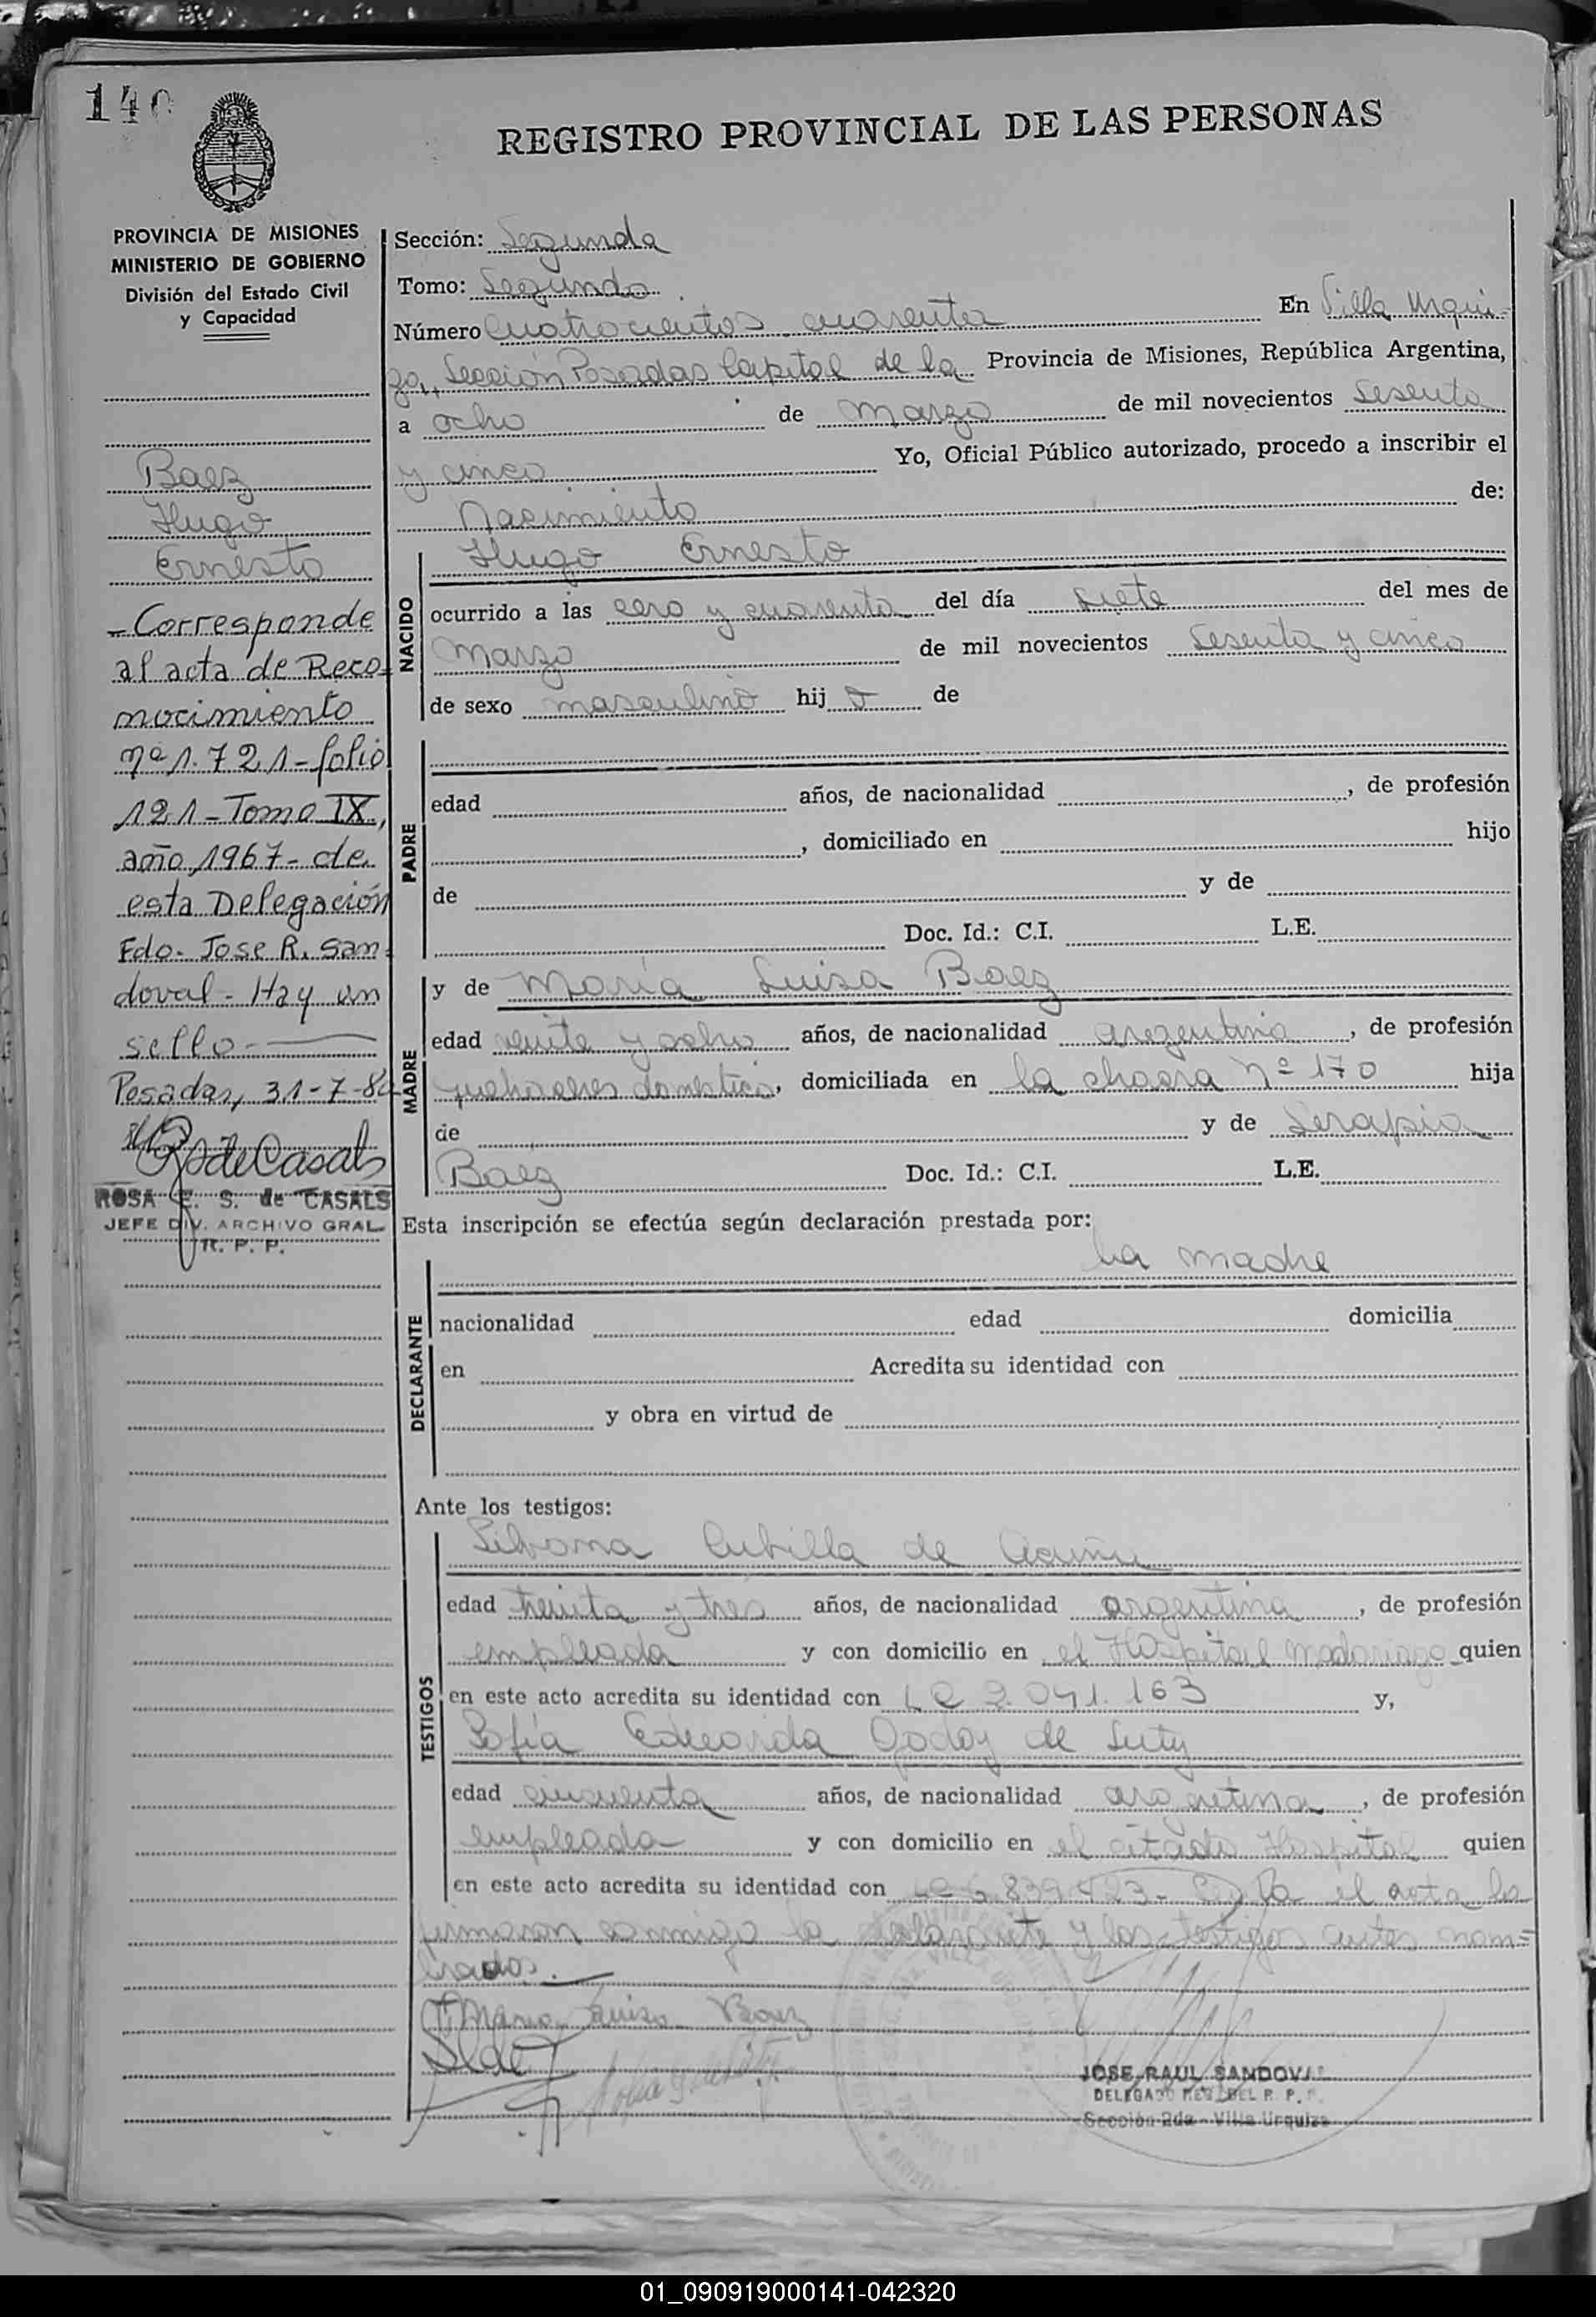 140
REGISTRO PROVINCIAL DE LAS PERSONAS
PROVINCIA DE MISIONES
MINISTERIO DE GOBIERNO
División del Estado Civil
y Capacidad
Baez
Hugo
Ernesto
-Corresponde
al acta de Reco-
nocimiento
nº 1.721-folio
121-Tomo IX,
año 1967- de
esta Delegación
Fdo. Jose R. San-
doval - Hay un
sello-
Posadas, 31-7-84
RS de Casals
ROSA E. S. de CASALS
JEFE DIV. ARCHIVO GRAL.
R. P. P.
Sección: Segunda
Tomo: Segundo
Número Cuatrocientos cuarenta En Villa Urqui-
za, Sección Posadas Capital de la Provincia de Misiones, República Argentina,
a ocho de Marzo de mil novecientos Sesenta
y cinco Yo, Oficial Público autorizado, procedo a inscribir el
Nacimiento de:
NACIDO
Hugo Ernesto
ocurrido a las cero y cuarenta del día siete del mes de
Marzo de mil novecientos Sesenta y cinco
de sexo masculino hij o de
PADRE
edad años, de nacionalidad , de profesión
, domiciliado en hijo
de y de
Doc. Id.: C.I. L.E.
MADRE
y de María Luisa Baez
edad veinte y ocho años, de nacionalidad argentina , de profesión
quehaceres domestico, domiciliada en la chacra nº 170 hija
de y de Serapia
Baez Doc. Id.: C.I. L.E.
Esta inscripción se efectúa según declaración prestada por:
DECLARANTE
la madre
nacionalidad edad domicilia
en Acredita su identidad con
y obra en virtud de
Ante los testigos:
TESTIGOS
Cubilla de Acuña
edad treinta y tres años, de nacionalidad argentina , de profesión
empleada y con domicilio en el Hospital Madariaga quien
en este acto acredita su identidad con LC 2.041.163 y,
Sofía Eduarda Godoy de
edad cincuenta años, de nacionalidad argentina , de profesión
empleada y con domicilio en el citado Hospital quien
en este acto acredita su identidad con el acta la
firmaron conmigo la declarante y los testigos antes nom=
brados.
Maria Luisa Baez
JOSE RAUL SANDOVAL
DELEGADO DEL R. P. P.
Sección 2da - Villa Urquiza
01_090919000141-042320